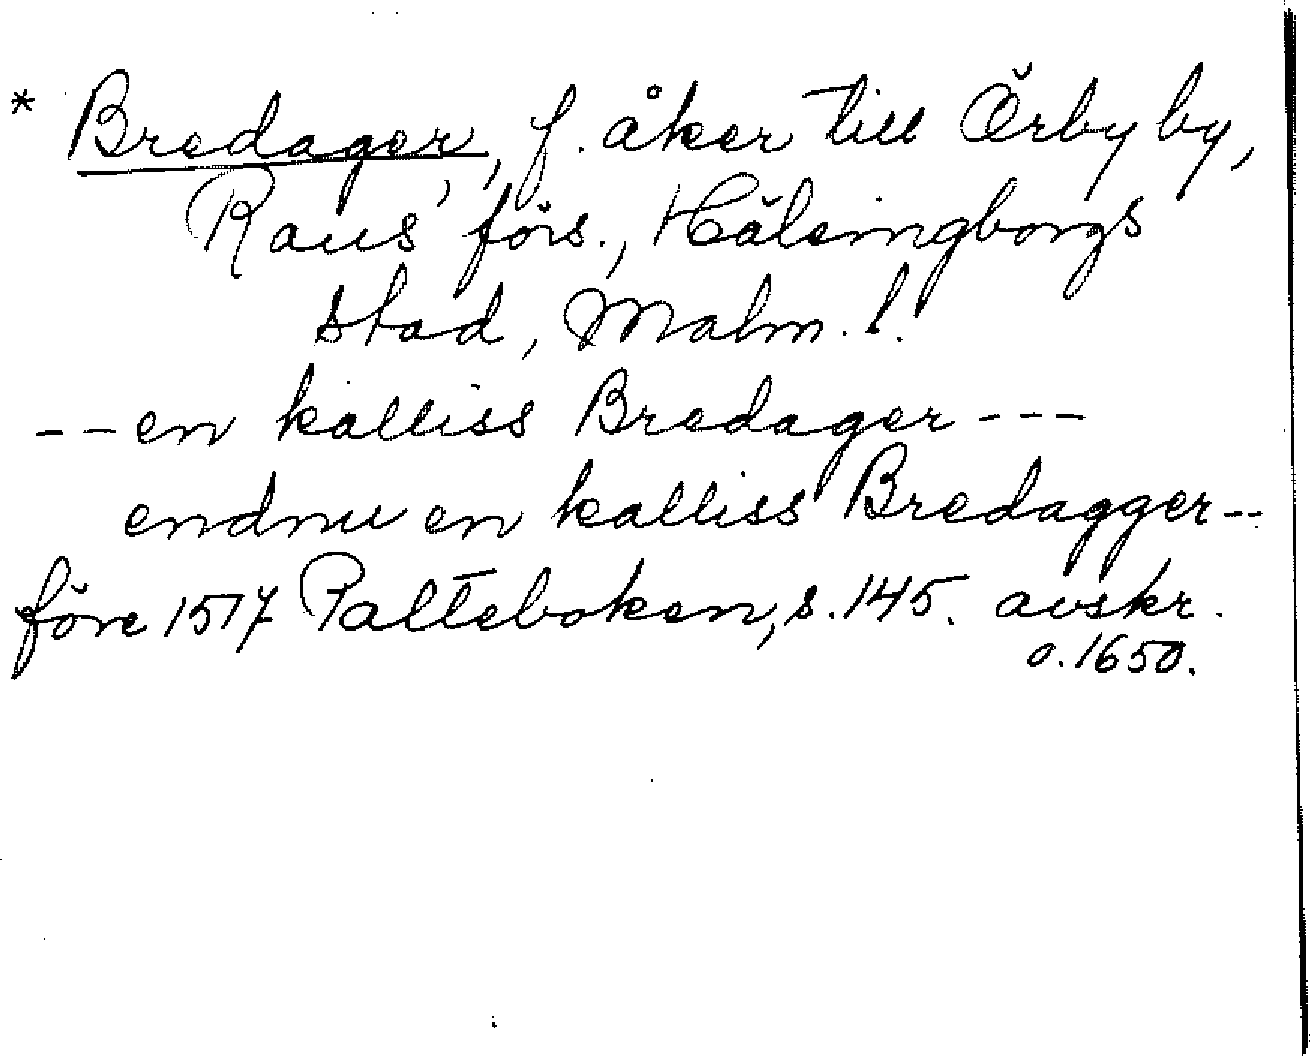 * Bredager, f. åker till Örby by,
Raus förs., Hälsingborgs
stad, Malm. l.
--en kalliss Bredager---
endnu en kalliss Bredagger--
före 1517 Palteboken, s. 145. avskr.
o. 1650.